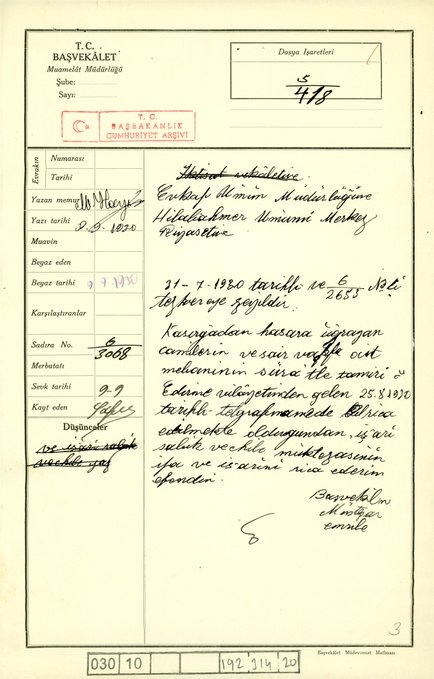 T. C.
BAŞVEKÂLET
Muamelât Müdürlüğü
Şube:
Sayı:
Dosya İşaretleri
5
418
T. C.
BAŞBAKANLIK
CUMHURİYET ARŞİVİ
Evrakın
Numarası
Tarihi
Yazan memur
Yazı tarihi 9.9.1930
Muavin
Beyaz eden
Beyaz tarihi 9 9 1930
Karşılaştıranlar
Sadıra No. 6
3068
Merbutatı
Sevk tarihi 9.9
Kayt eden
Düşünceler
İktisat vekâletine
Evkap Umum Müdürlüğüne
Hilaliahmer Umumi Merkez
Riyasetine
31-7-1930 tarihli ve 6
2655 No.li
tezkereye zeyildir.
Kasırgadan hasara uğrayan
camilerin ve sair vakfa ait
mebaninin sür'atle tamiri
Edirne vilâyetinden gelen 25.8.1930
tarihli telgrafnamede rica
edilmekte olduğundan, iş'arı
ifa ve iş'arını rica ederim
efendim.
Başvekil n.
Müsteşar
3
Başvekâlet Müdevvenat Matbaası
030 10 192 314 20